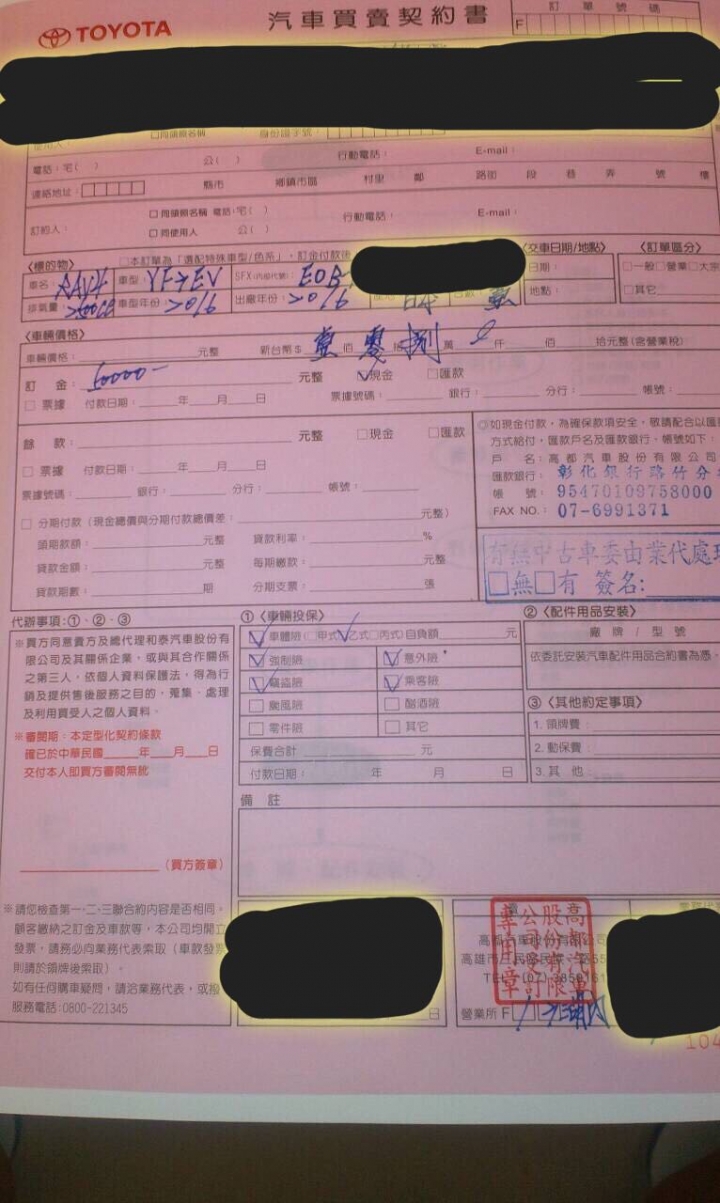 TOYOTA 汽車買賣契約書 訂單號碼
F
□同領照名稱 身份證字號：
電話：宅( ) 公( ) 行動電話： E-mail：
連絡地址： 縣市 鄉鎮市區 村里 鄰 路街 段 巷 弄 號 樓
□同領照名稱 電話：宅( ) 行動電話： E-mail：
訂約人： □同使用人 公( )
〈標的物〉 □本訂單為「選配特殊車型/色系」，訂金付款後 〈交車日期/地點〉 〈訂單區分〉
車名： RAV4 車型： SFX(內部代號)： 日期： □一般□營業□大宗
排氣量 車型年份：2016 出廠年份：2016 日本 壹 地點： □其它
〈車輛價格〉
車輛價格： 元整 新台幣$ 壹 佰 零 捌 萬 仟 佰 拾元整(含營業稅)
訂 金： 50000- 元整 ☑現金 □匯款
□票據 付款日期： 年 月 日 票據號碼： 銀行： 分行： 帳號：
餘 款： 元整 □現金 □匯款
□票據 付款日期： 年 月 日
票據號碼： 銀行： 分行： 帳號：
□分期付款（現金總價與分期付款總價差： 元整）
頭期款額： 元整 貸款利率： %
貸款金額： 元整 每期繳款： 元整
貸款期數： 期 分期支票： 張
◎如現金付款，為確保款項安全，敬請配合以匯
方式給付，匯款戶名及匯款銀行、帳號如下：
戶 名：高都汽車股份有限公司
匯款銀行： 彰化銀行路竹分
帳 號： 95470109758000
FAX NO.： 07-6991371
有無中古車委由業代處理
□無□有 簽名：
代辦事項：①、②、③
※買方同意貴方及總代理和泰汽車股份有
限公司及其關係企業，或與其合作關係
之第三人，依個人資料保護法，得為行
銷及提供售後服務之目的，蒐集、處理
及利用買受人之個人資料。
※審閱期：本定型化契約條款
確已於中華民國 年 月 日
交付本人即買方審閱無訛
（買方簽章）
①〈車輛投保〉
☑車體險(□甲式☑乙式□丙式)自負額 元
☑強制險 ☑意外險
☑竊盜險 ☑乘客險
□颱風險 □酗酒險
□零件險 □其它
保費合計 元
付款日期： 年 月 日
②〈配件用品安裝〉
廠 牌 / 型 號
依委託安裝汽車配件用品合約書為憑。
③〈其他約定事項〉
1. 領牌費：
2. 動保費：
3. 其 他：
備 註
※請您檢查第一、二、三聯合約內容是否相同。
顧客繳納之訂金及車款等，本公司均開立
發票，請務必向業務代表索取（車款發票
則請於領牌後索取）。
如有任何購車疑問，請洽業務代表，或撥
服務電話：0800-221345
日
高都汽車股份有限公司訂車專用章
高都汽車股份有限公司
高雄市三民區民族一路
TEL：(07)
營業所 F
104